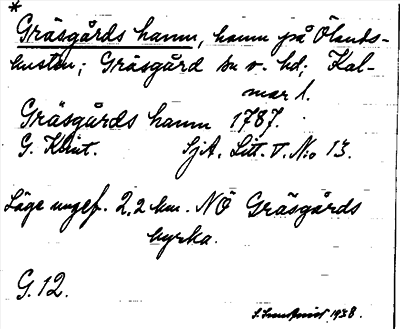 *
Gräsgårds hamn, hamn på Ölands-
kusten; Gräsgård sn o. hd; Kal-
mar l.
Gräsgårds hamn 1787.
G. Klint. SjA. Litt. V. No 13.
Läge ungef. 2,2 km. NÖ Gräsgårds
kyrka.
G. 12.
1938.